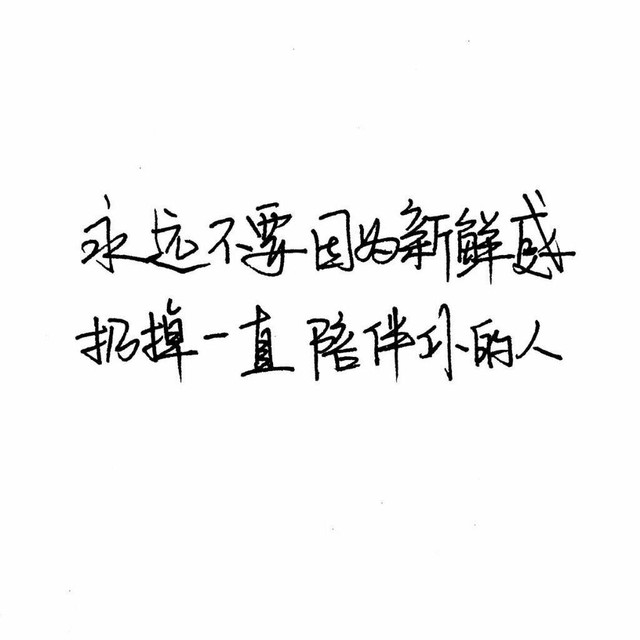 永远不要因为新鲜感
扔掉一直陪伴你的人